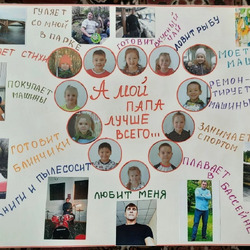 ГУЛЯЕТ
СО МНОЙ
В ПАРКЕ
ГОТОВИТ
ВКУСНЫЙ
ЧАЙ
ЛОВИТ РЫБУ
СТИХИ
МОЕТ
ПОКУПАЕТ
МАШИНЫ
А МОЙ
ПАПА
ЛУЧШЕ
ВСЕГО...
РЕМОН
ТИРУЕТ
МАШИНЫ
ГОТОВИТ
БЛИНЧИКИ
ЗАНИМАЕТСЯ
СПОРТОМ
И ПЫЛЕСОСИТ
ПЛАВАЕТ В БАССЕЙНЕ
ЛЮБИТ МЕНЯ